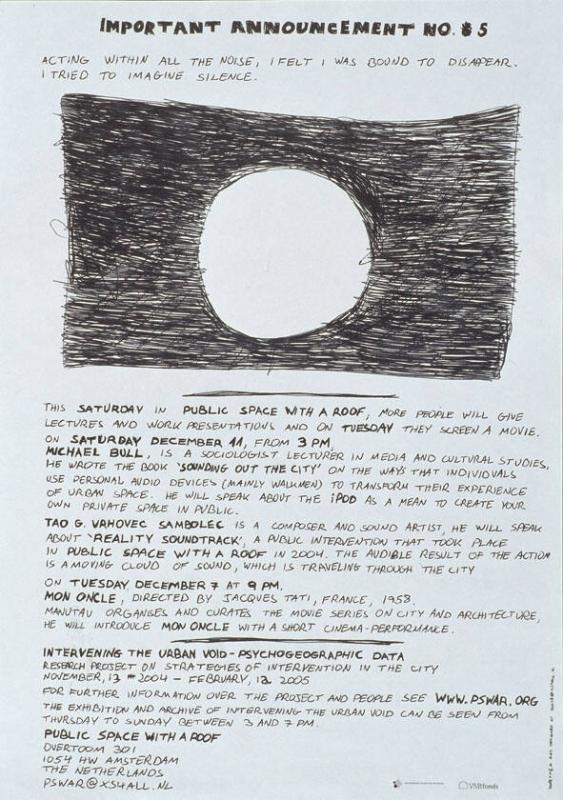 IMPORTANT ANNOUNCEMENT NO. 5
ACTING WITHIN ALL THE NOISE, I FELT I WAS BOUND TO DISAPPEAR.
I TRIED TO IMAGINE SILENCE.
THIS SATURDAY IN PUBLIC SPACE WITH A ROOF, MORE PEOPLE WILL GIVE
LECTURES AND WORK PRESENTATIONS AND ON TUESDAY THEY SCREEN A MOVIE.
ON SATURDAY DECEMBER 11, FROM 3 PM,
MICHAEL BULL, IS A SOCIOLOGIST LECTURER IN MEDIA AND CULTURAL STUDIES,
HE WROTE THE BOOK 'SOUNDING OUT THE CITY' ON THE WAYS THAT INDIVIDUALS
USE PERSONAL AUDIO DEVICES (MAINLY WALKMEN) TO TRANSFORM THEIR EXPERIENCE
OF URBAN SPACE. HE WILL SPEAK ABOUT THE iPOD AS A MEAN TO CREATE YOUR
OWN PRIVATE SPACE IN PUBLIC.
TAO G. VRHOVEC SAMBOLEC IS A COMPOSER AND SOUND ARTIST, HE WILL SPEAK
ABOUT 'REALITY SOUNDTRACK', A PUBLIC INTERVENTION THAT TOOK PLACE
IN PUBLIC SPACE WITH A ROOF IN 2004. THE AUDIBLE RESULT OF THE ACTION
IS A MOVING CLOUD OF SOUND, WHICH IS TRAVELING THROUGH THE CITY
ON TUESDAY DECEMBER 7 AT 9 PM.
MON ONCLE, DIRECTED BY JACQUES TATI, FRANCE, 1958.
MANUTAU ORGANISES AND CURATES THE MOVIE SERIES ON CITY AND ARCHITECTURE,
HE WILL INTRODUCE MON ONCLE WITH A SHORT CINEMA-PERFORMANCE.
INTERVENING THE URBAN VOID - PSYCHOGEOGRAPHIC DATA
RESEARCH PROJECT ON STRATEGIES OF INTERVENTION IN THE CITY
NOVEMBER, 13 2004 - FEBRUARY, 12 2005
FOR FURTHER INFORMATION OVER THE PROJECT AND PEOPLE SEE WWW.PSWAR.ORG
THE EXHIBITION AND ARCHIVE OF INTERVENING THE URBAN VOID CAN BE SEEN FROM
THURSDAY TO SUNDAY BETWEEN 3 AND 7 PM.
PUBLIC SPACE WITH A ROOF
OVERTOOM 301
1054 HW AMSTERDAM
THE NETHERLANDS
PSWAR@XS4ALL.NL
VSBfonds